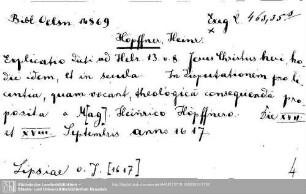 Bibl. Oelsn. 10869
Höpffner, Heinr.
Explicatio dicti ad Hebr. 13 v. 8. Jesus Christus heri ho-
die idem, et in secula. In disputationem pro li-
centia, quam vocant, theologica consequenda pro-
posita a M[ag]. Heinrico Höpffnero. Die
et XVIII. Septembris anno 1617
Lipsiae o. J. [1617]
4
Sächsische Landesbibliothek -
Staats- und Universitätsbibliothek Dresden